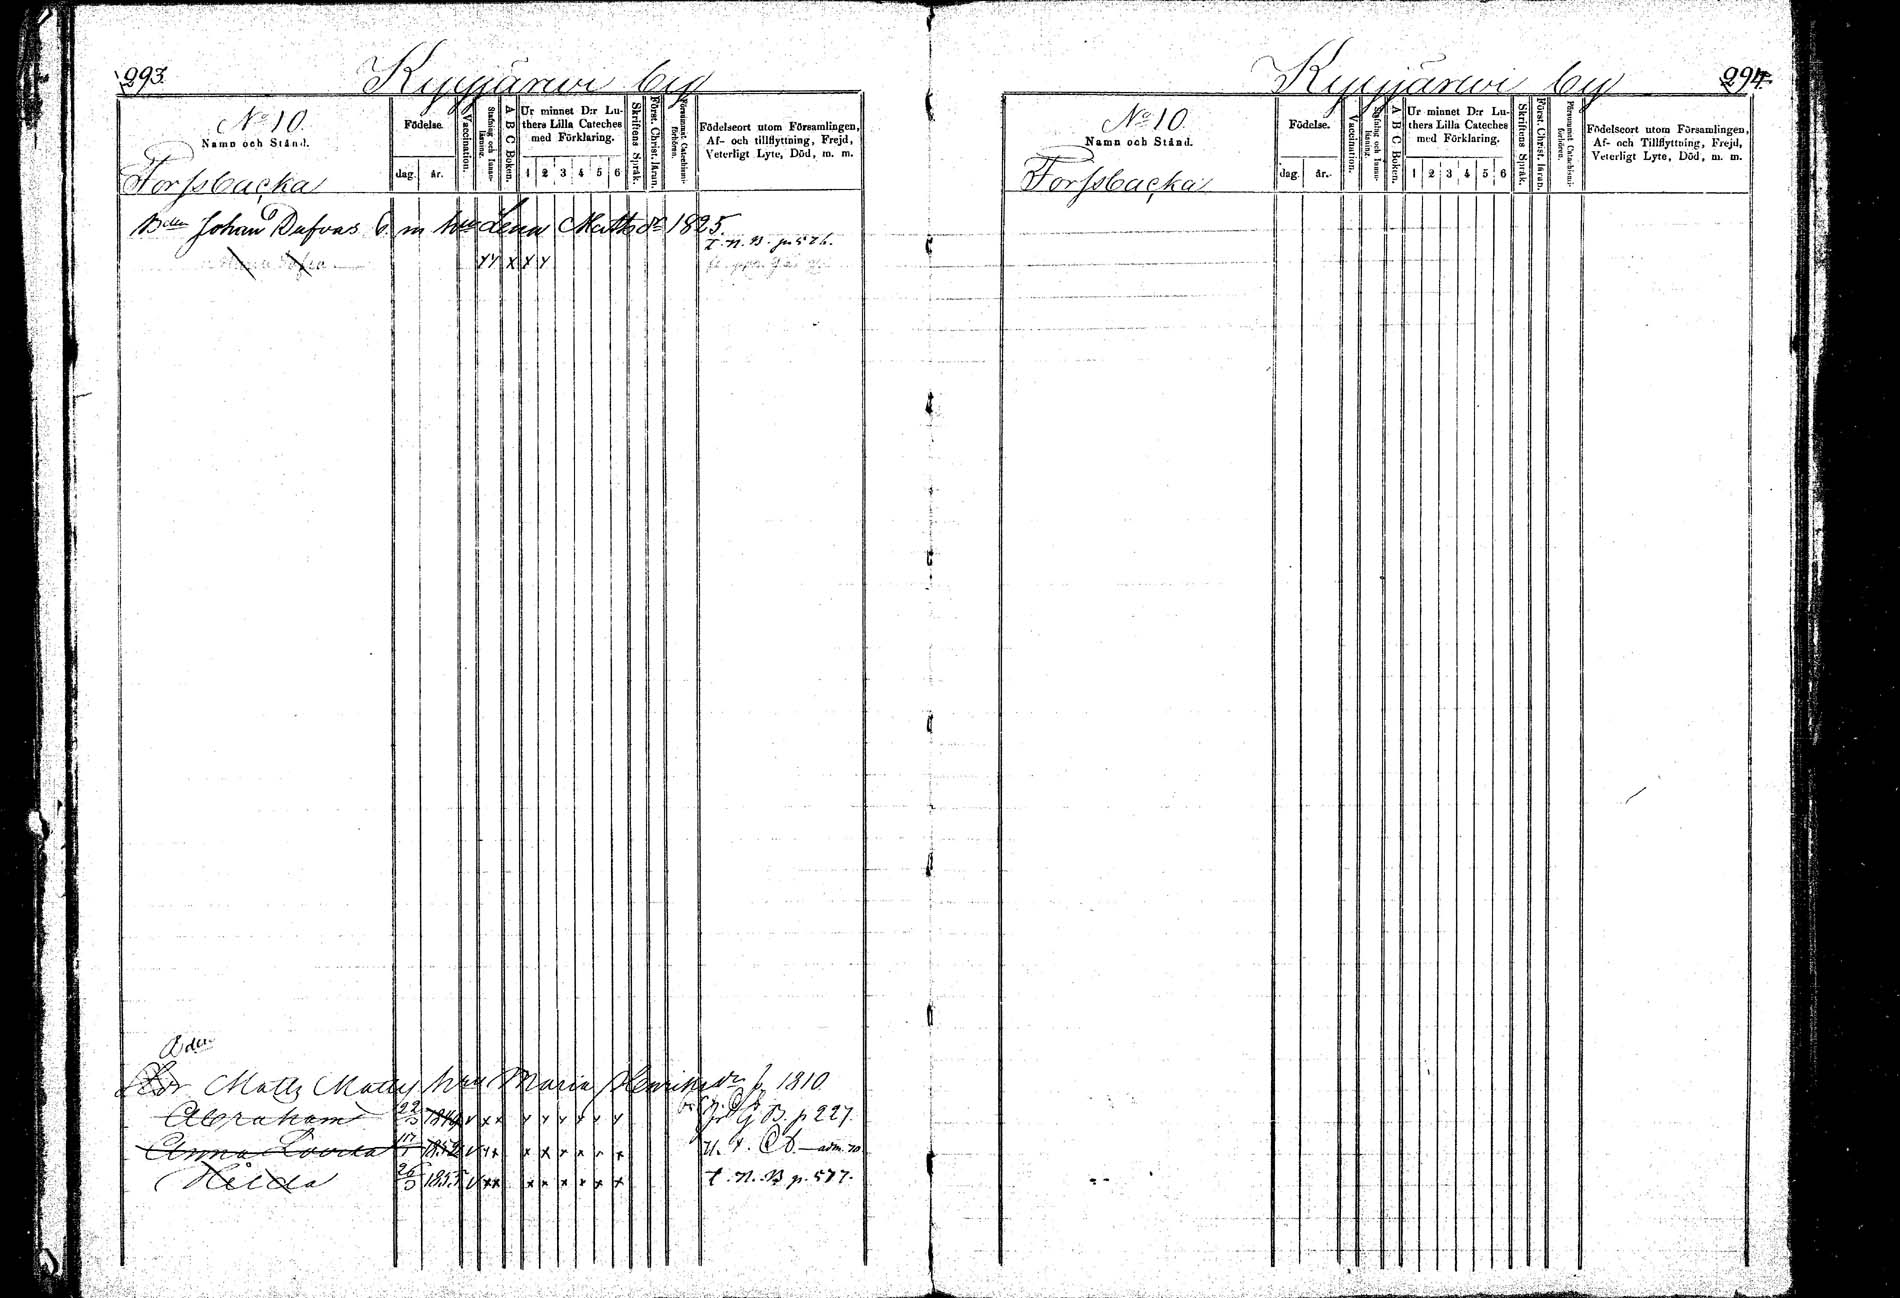 293.
Kyyjärwi by
No 10.
Namn och Stånd.
Födelse.
dag. år.
Vaccination.
Stafning och Innanläsning.
A B C Boken.
Ur minnet D:r Luthers Lilla Cateches med Förklaring.
1 2 3 4 5 6
Skriftens Språk.
Först. Christ. läran.
Försummat Catechismiförhören.
Födelseort utom Församlingen,
Af- och tillflyttning, Frejd,
Veterligt Lyte, Död, m. m.
Forssbacka
Bden Johan Dafvas b. m hu Lena Matts dr 1825.
t. N. B. p. 576.
x x x x x
Aden
Matts Matts hu Maria Henriks dr f. 1810
Abraham 22/3 1849 v x x x x x x x x G B. p 227.
Anna Lovisa 17/1 1852 v x x x x x x x x
Hilda 26/3 1855 v x x x x x x x x t. N. B p. 577.
294.
Kyyjärwi by
No 10.
Namn och Stånd.
Födelse.
dag. år.
Vaccination.
Stafning och Innanläsning.
A B C Boken.
Ur minnet D:r Luthers Lilla Cateches med Förklaring.
1 2 3 4 5 6
Skriftens Språk.
Först. Christ. läran.
Försummat Catechismiförhören.
Födelseort utom Församlingen,
Af- och Tillflyttning, Frejd,
Veterligt Lyte, Död, m. m.
Forssbacka